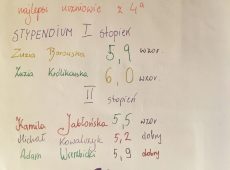 najlepsi uczniowie z 4a
STYPENDIUM I stopień
Zuzia Borowska 5,9 wzor.
Zuzia Królikowska 6,0 wzor.
II stopień
Kamila Jabłońska 5,5 wzor.
Michał Kowalczyk 5,2 dobry
Adam Wierzbicki 5,9 dobry